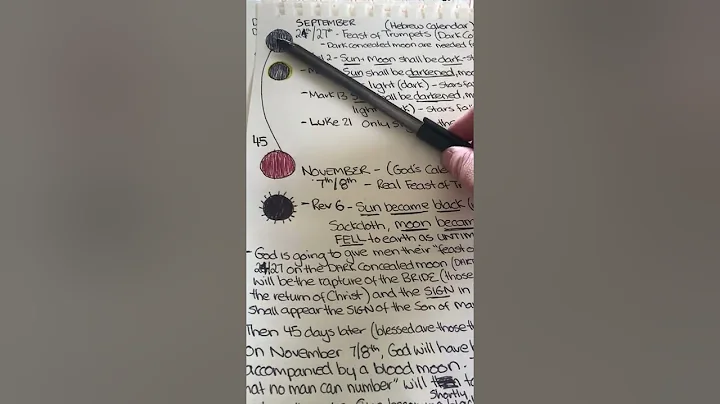 SEPTEMBER (Hebrew Calendar)
/27th - Feast of Trumpets (Dark Co
- Dark concealed moon are needed f
2 - Sun + Moon shall be dark - st
Sun shall be darkened, mo
light (dark) - stars fa
- Mark 13 shall be darkened, m
light - stars fa
- Luke 21 Only
45
NOVEMBER - (God's Cale
7th/8th - Real Feast of Tr
- Rev 6 - Sun became black
Sackcloth, moon becam
FELL to earth as UNTIM
- God is going to give men their "feast o
/27 on the DARK concealed moon (DARK
will be the rapture of the BRIDE (those
the return of Christ) and the SIGN in
shall appear the SIGN of the Son of ma
Then 45 days later (blessed are those th
on November 7/8th, God will have
accompanied by a blood moon.
hat no man can number" will to
shortly